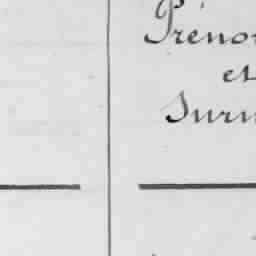 Préno
et
Surn